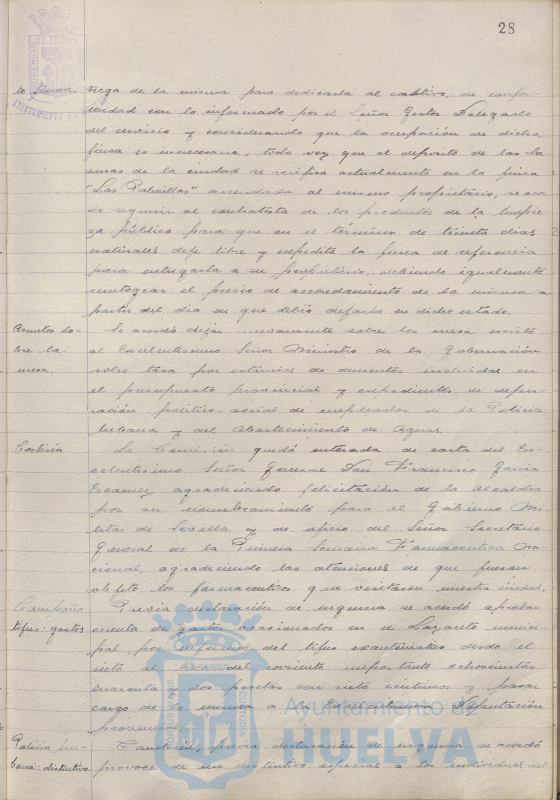 28
AYUNTAMIENTO DE
la misma para dedicarla al cultivo, de confor-
midad con lo informado por el Señor Gestor Delegado
del servicio y considerando que la ocupación de dicha
finca es innecesaria, toda vez que el depósito de las ba
suras de la ciudad se verifica actualmente en la finca
"Las Palmillas" arrendada al mismo propietario, se acor
dó requerir al contratista de los productos de la limpie
za pública para que en el término de treinta días
naturales deje libre y expedita la finca de referencia
para entregarla a su propietario, debiendo igualmente
reintegrar el precio de arrendamiento de la misma a
partir del día en que debió dejarla en dicho estado.
Asuntos so-
bre la
mesa.
Se acordó dejar nuevamente sobre la mesa escrito
al Excelentísimo Señor Ministro de la Gobernación
sobre tasa por estancias de dementes incluidas en
el presupuesto provincial y expedientes de depu-
ración político-social de empleados de la Policía
Urbana y del Abastecimiento de Aguas.
Cortesía
La Comisión quedó enterada de carta del Ex-
celentísimo Señor General Don Francisco García
Escamez agradeciendo felicitación de la Alcaldía
por su nombramiento para el Gobierno Mi
litar de Sevilla y de oficio del Señor Secretario
General de la Primera Semana Farmaceutica Na
cional, agradeciendo las atenciones de que fueron
objeto los farmaceuticos que visitaron nuestra ciudad.
Campaña
tifus: gastos
Previa declaración de urgencia se acordó aprobar
cuenta de gastos ocasionados en el Lazareto munici
pal por enfermos del tifus exantematico desde el
siete al del corriente importante ochocientas
cuarenta y dos pesetas con siete centimos y pasar
cargo de la misma a la Excelentísima Diputación
provincial.
Policía Ur-
bana: distintivo
Tambien, previa declaración de urgencia se acordó
proveer de un distintivo especial a los individuos del
Ayuntamiento de
HUELVA